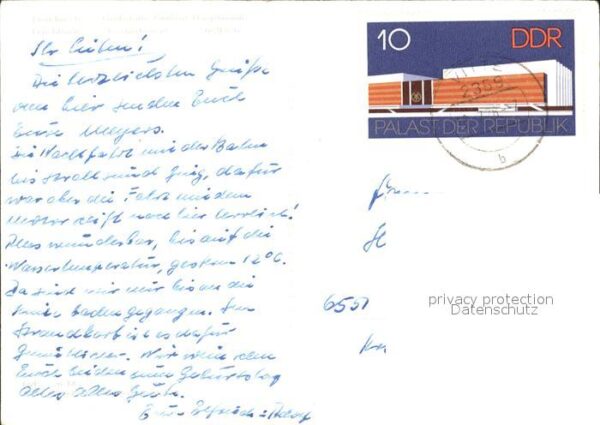 Ihr Lieben!
Die herzlichsten Grüße
von hier senden Euch
Eure Meyers.
Die Nachtfahrt mit der Bahn
bis Stralsund ging, dafür
war aber die Fahrt mit dem
Motorschiff nach hier herrlich!
Alles wunderbar, bis auf die
Wassertemperatur, gestern 12°C.
Da sind wir nur bis an die
Knie baden gegangen. Im
Strandkorb ist es dafür
Wir wünschen
Euch beiden zum Geburtstag
alles alles Gute.
Eure
10
DDR
PALAST DER REPUBLIK
b
6551
privacy protection
Datenschutz